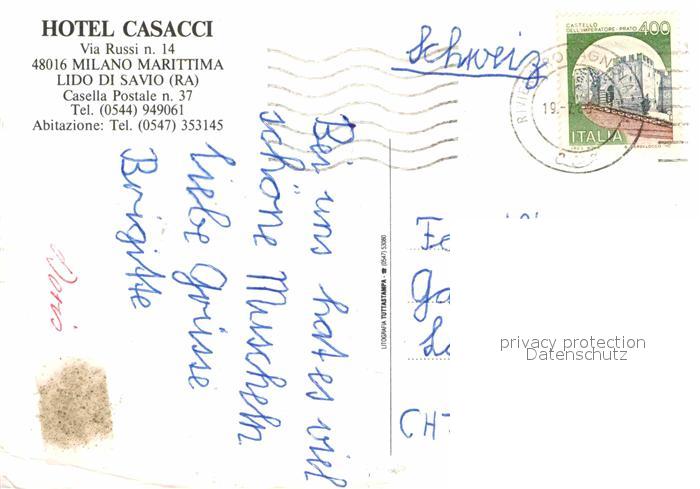 HOTEL CASACCI
Via Russi n. 14
48016 MILANO MARITTIMA
LIDO DI SAVIO (RA)
Casella Postale n. 37
Tel. (0544) 949061
Abitazione: Tel. (0547) 353145
Schweiz
CASTELLO
DELL'IMPERATORE - PRATO
400
ITALIA
19.
Bei uns hat es viel
schöne Muscheln
liebe Grüsse
Brigitte
Doris
LITOGRAFIA TUTTASTAMPA - ☎ (0547) 53080
CH-
privacy protection
Datenschutz